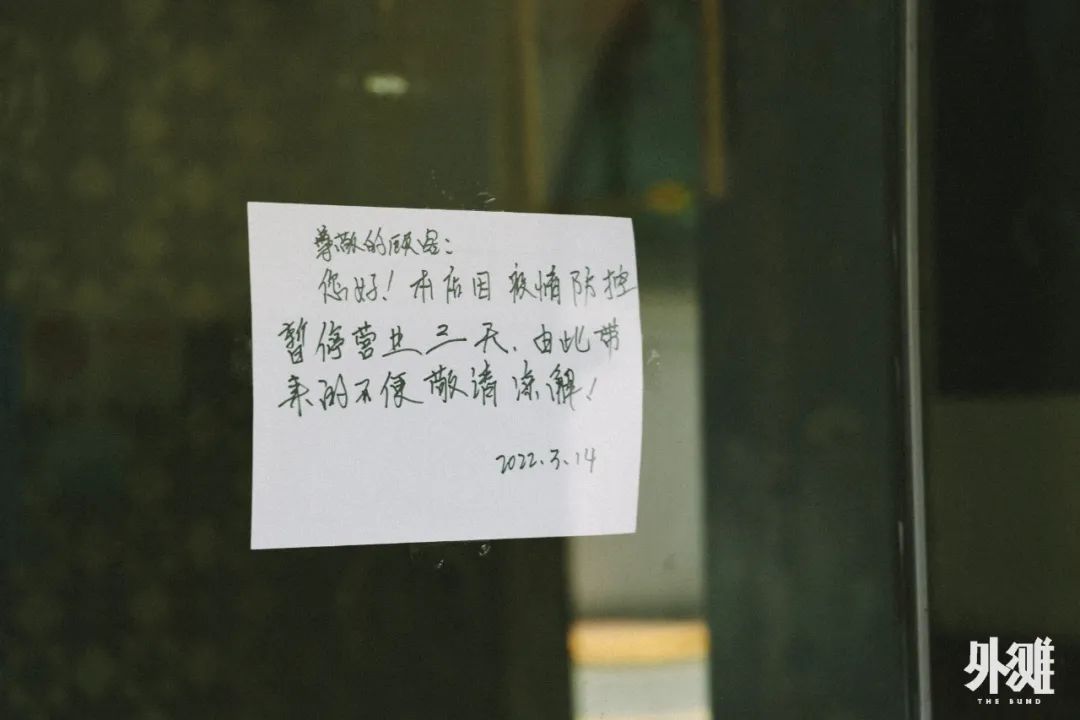 尊敬的顾客：
您好！本店因疫情防控
暂停营业三天.由此带
来的不便敬请谅解！
2022.3.14
外滩
THE BUND